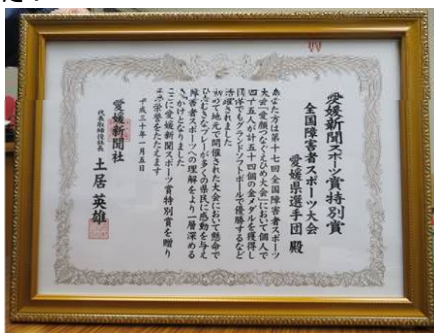 愛媛新聞スポーツ賞特別賞
全国障害者スポーツ大会
愛媛県選手団 殿
あなた方は第十七回全国障害者スポーツ
大会「愛顔つなぐえひめ大会」において個人で
四十五人が計五十四個の金メダルを獲得し
団体でもグランドソフトボールで優勝するなど
活躍されました
初めて地元で開催された大会において懸命で
ひたむきなプレーが多くの県民に感動を与え
障害者スポーツへの理解をより一層深める
きっかけとなりました
ここに愛媛新聞スポーツ賞特別賞を贈り
その栄誉をたたえます
平成三十年一月五日
愛媛新聞社
代表取締役社長 土居英雄